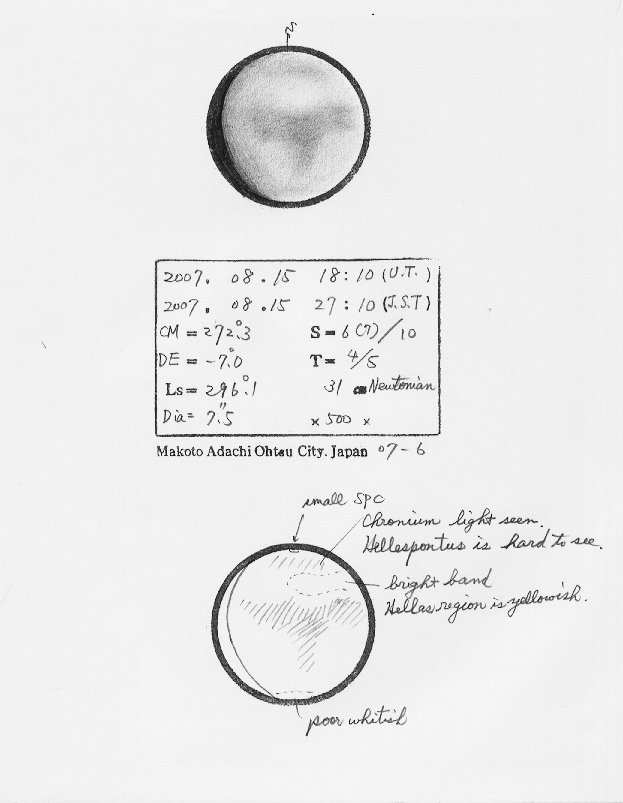 2007. 08.15 18:10 (U.T.)
2007. 08.15 27:10 (J.S.T)
CM = 272°.3 S = 6(7)/10
DE = -7°.0 T = 4/5
Ls = 296°.1 31 cm Newtonian
Dia = 7".5 × 500 ×
Makoto Adachi Ohtsu City. Japan 07-6
small SPC
Chronium light seen.
Hellespontus is hard to see.
bright band
Hellas region is yellowish.
poor whitish